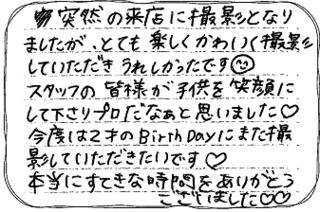 突然の来店に撮影となり
ましたが、とても楽しくかわいく撮影
していただきうれしかったです☺
スタッフの皆様が子供を笑顔に
して下さりプロだなぁと思いました♡
今度は2才のBirth Dayにまた撮
影していただきたいです♡
本当にすてきな時間をありがとう
ございました♡♡